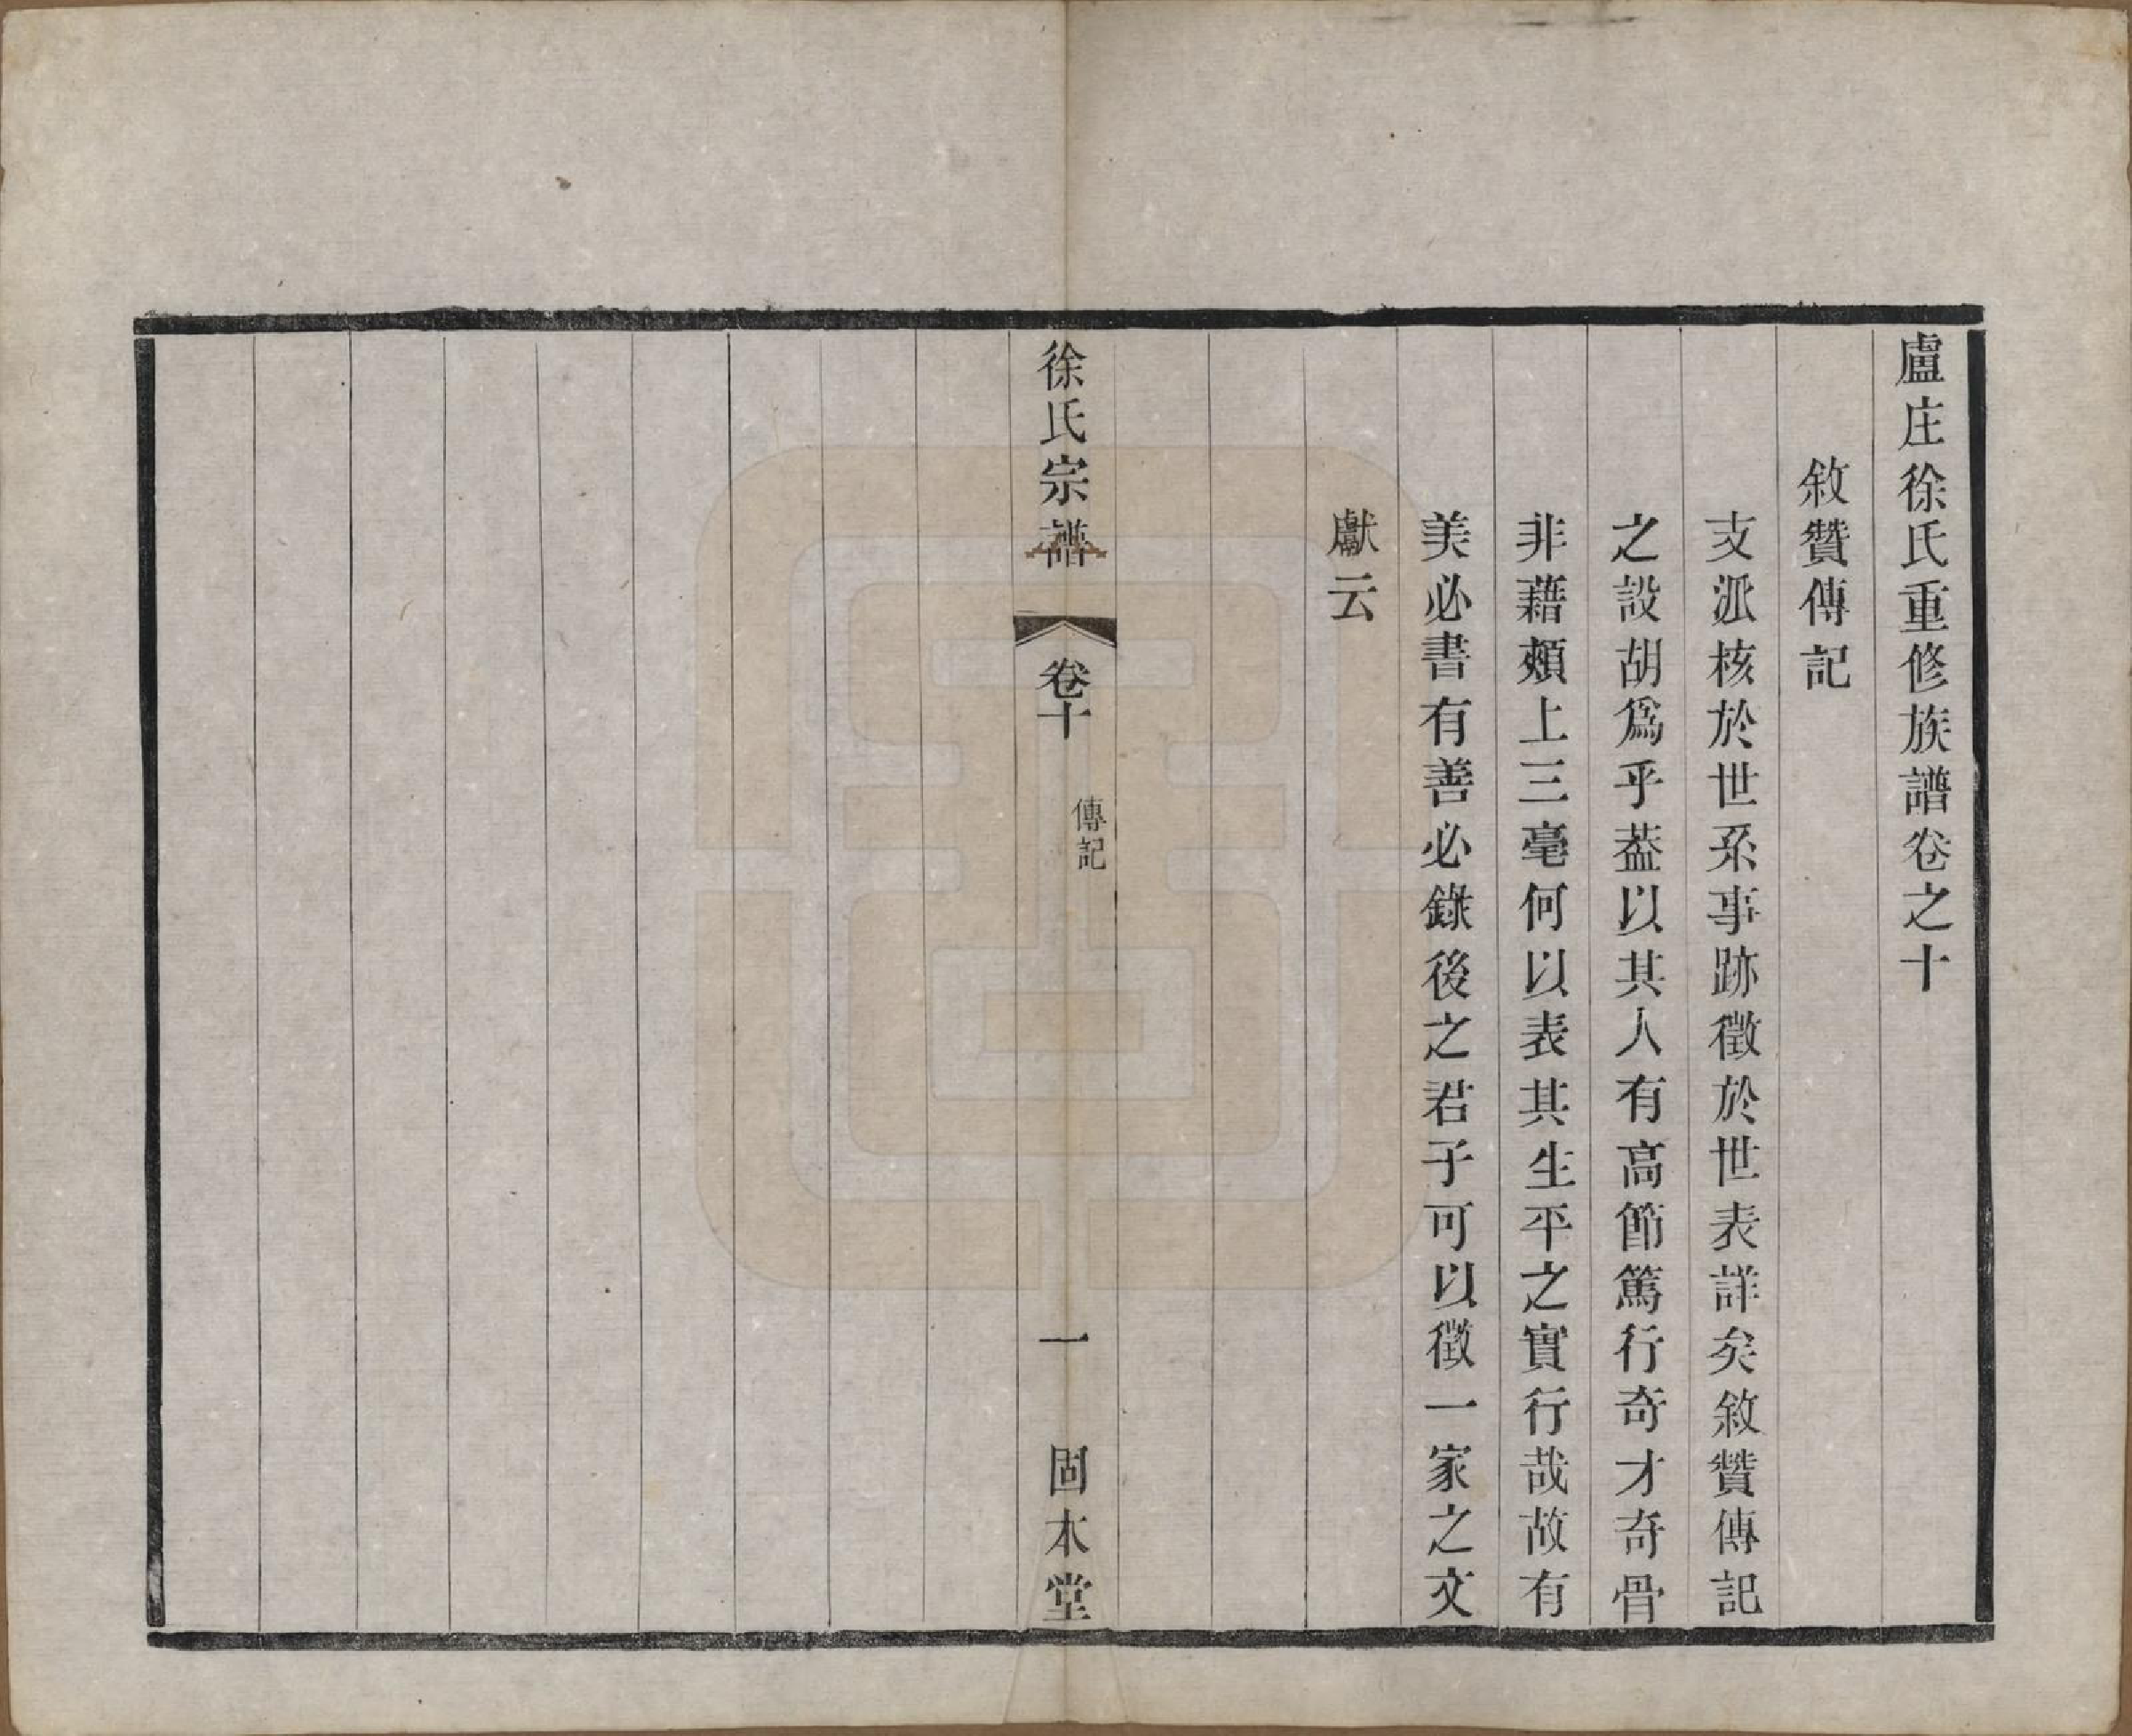 盧庄徐氏重修族譜卷之十
敘贊傳記
支派核於世系事跡徵於世表詳矣敘贊傳記
之設胡爲乎葢以其人有高節篤行奇才奇骨
非藉頰上三毫何以表其生平之實行哉故有
美必書有善必錄後之君子可以徵一家之文
獻云
徐氏宗譜
卷十
傳記
一
固本堂